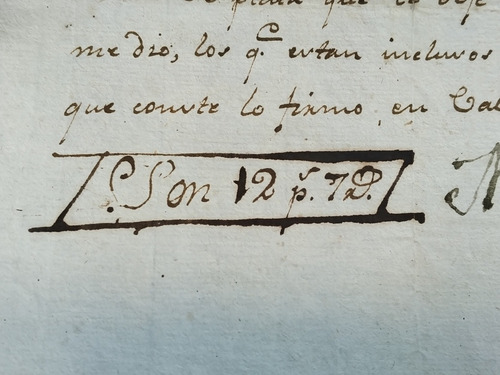 plata que le deje
medio, los q.e estan incluros
que conste lo firmo, en Cal
Son 12 p.s 7 r.s